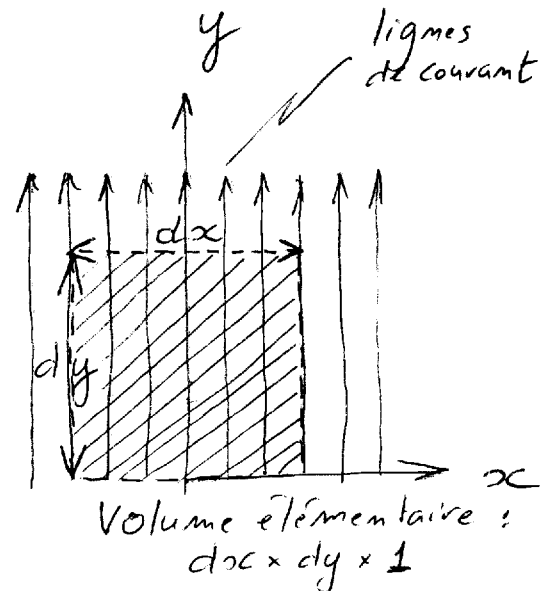 y
lignes
de courant
dx
dy
x
Volume élémentaire :
dx × dy × 1